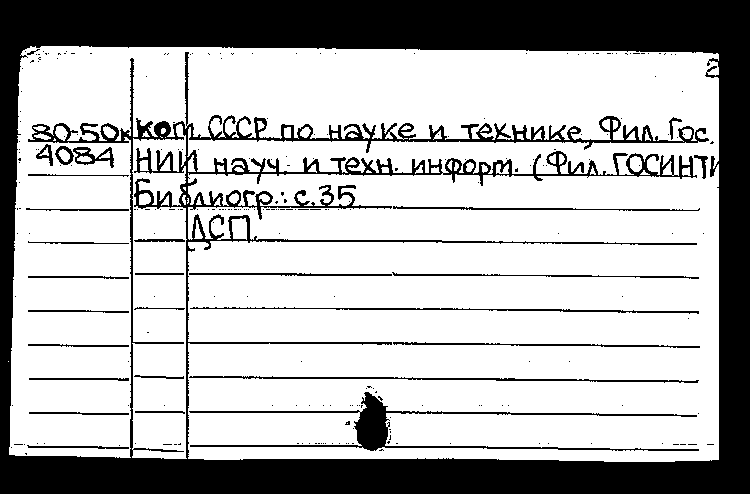 2
80-50к ком. СССР по науке и технике, Фил. Гос.
4084 НИИ науч. и техн. информ. (Фил. ГОСИНТИ
Библиогр.: с.35
ДСП.